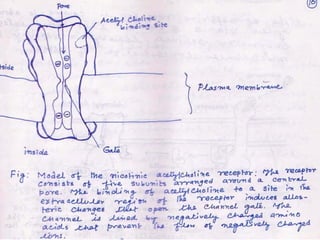 Pore
10
Acetyl Choline
binding site
side
Plasma membrane
Gate
inside
Fig: Model of the nicotinic acetylcholine receptor: The receptor
consists of five subunits arranged around a central
pore. The binding of acetylcholine to a site in the
extracellular region of the receptor induces allos-
teric changes that open the channel gate. The
channel is lined by negatively charged amino
acids that prevent the flow of negatively charged
ions.